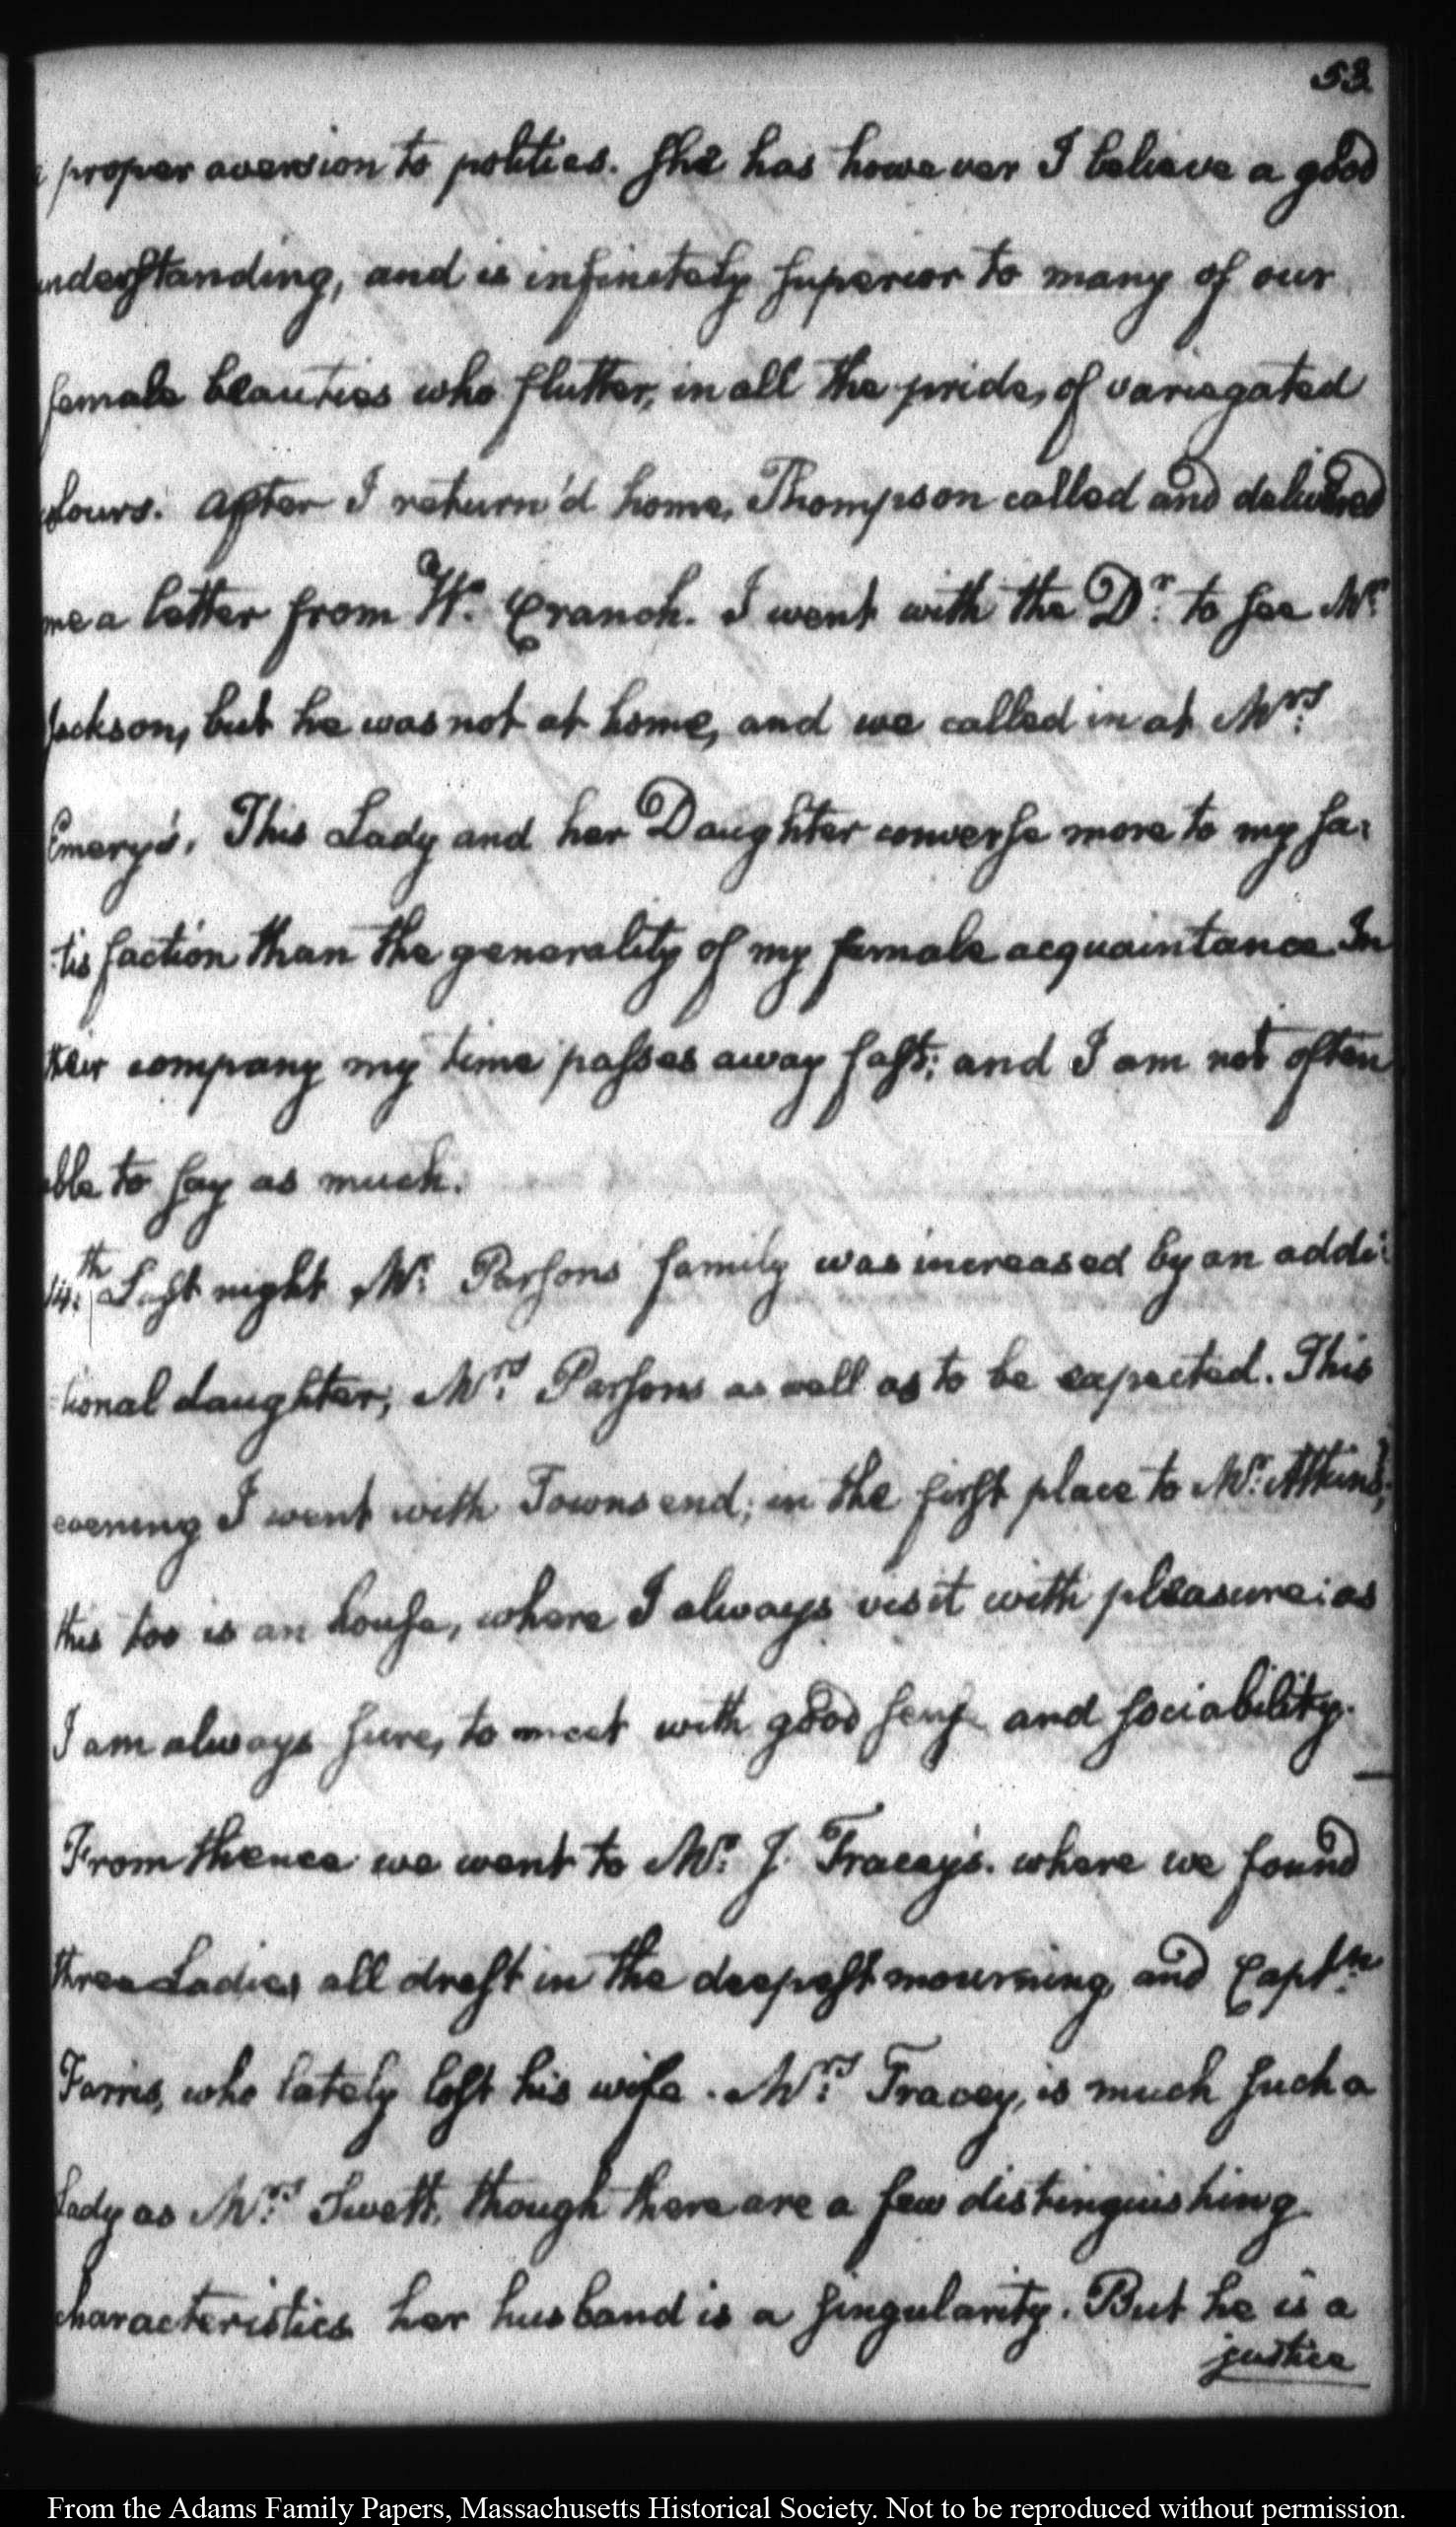 53.
a proper aversion to politics. She has however I believe a good
understanding, and is infinitely superior to many of our
female beauties who flutter, in all the pride, of variegated
colours. After I return'd home, Thompson called and delivered
me a letter from W. Cranch. I went with the Dr. to see Mr.
Jackson, but he was not at home, and we called in at Mrs.
Emery's, This Lady and her Daughter converse more to my sa:
:tisfaction than the generality of my female acquaintance In
their company my time passes away fast; and I am not often
able to say as much.
14th. Last night Mr. Parsons family was increased by an addi:
:tional daughter; Mrs. Parsons as well as to be expected. This
evening I went with Townsend; in the first place to Mr. Atkins's;
this too is an house, where I always visit with pleasure: as
I am always sure, to meet with good sense and sociability. —
From thence we went to Mr. J. Tracey's. where we found
three Ladies all drest in the deepest mourning, and Captn.
Farris, who lately lost his wife. Mrs. Tracey, is much such a
Lady as Mrs. Swett, though there are a few distinguishing
characteristics her husband is a singularity. But he is a
justice
From the Adams Family Papers, Massachusetts Historical Society. Not to be reproduced without permission.